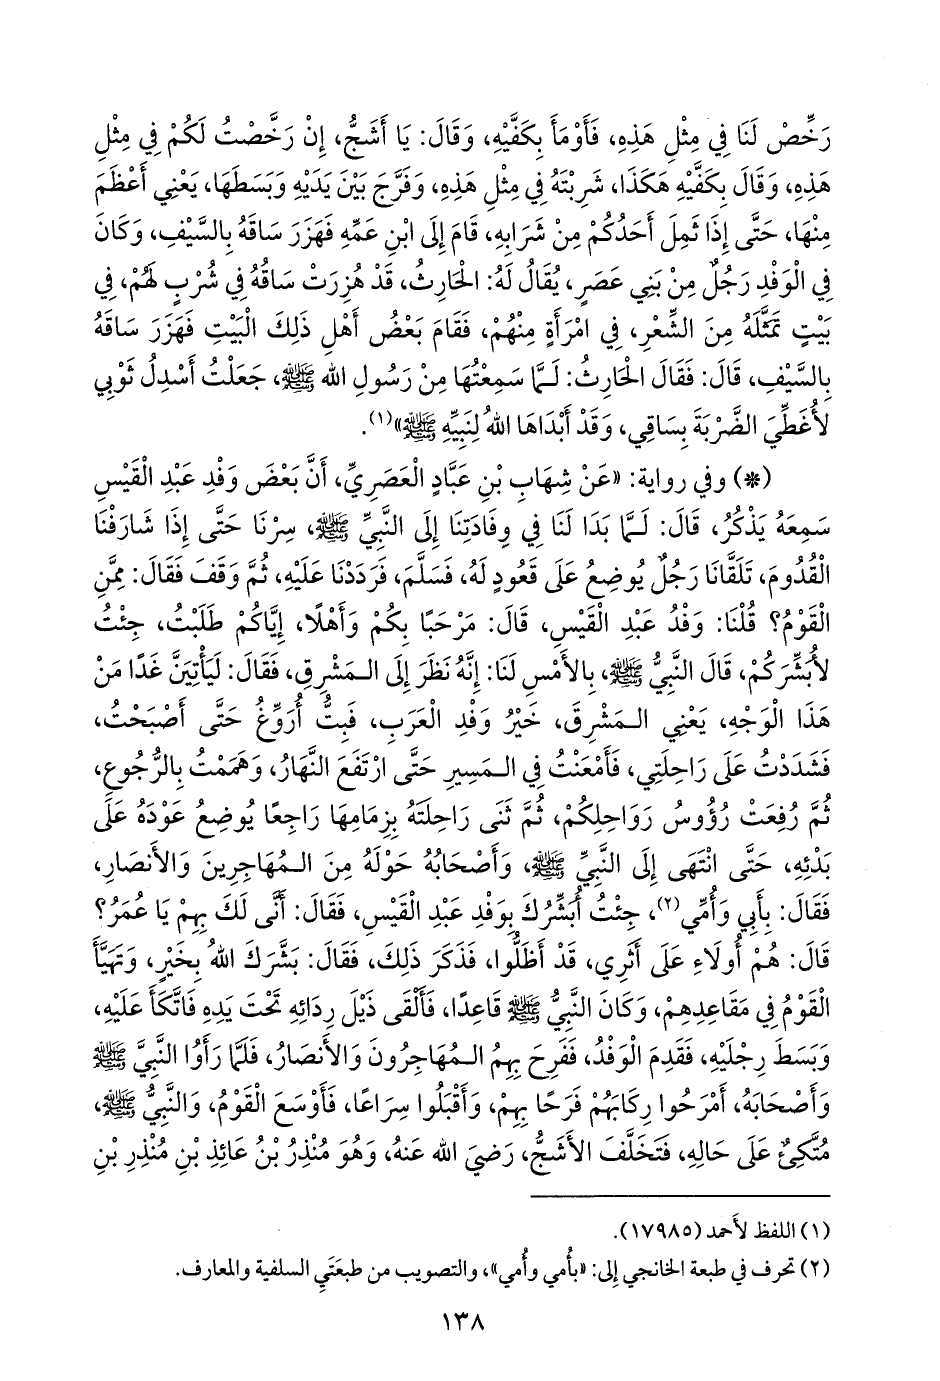 رَخِّصْ لَنَا فِي مِثْلِ هَذِهِ، فَأَوْمَأَ بِكَفَّيْهِ، وَقَالَ: يَا أَشَجُّ، إِنْ رَخَّصْتُ لَكُمْ فِي مِثْلِ
هَذِهِ، وَقَالَ بِكَفَّيْهِ هَكَذَا، شَرِبْتَهُ فِي مِثْلِ هَذِهِ، وَفَرَّجَ بَيْنَ يَدَيْهِ وَبَسَطَهَا، يَعْنِي أَعْظَمَ
مِنْهَا، حَتَّى إِذَا ثَمِلَ أَحَدُكُمْ مِنْ شَرَابِهِ، قَامَ إِلَى ابْنِ عَمِّهِ فَهَزَرَ سَاقَهُ بِالسَّيْفِ، وَكَانَ
فِي الْوَفْدِ رَجُلٌ مِنْ بَنِي عَصَرٍ، يُقَالُ لَهُ: الْحَارِثُ، قَدْ هُزِرَتْ سَاقُهُ فِي شُرْبٍ لَهُمْ، فِي
بَيْتٍ تَمَثَّلَهُ مِنَ الشِّعْرِ، فِي امْرَأَةٍ مِنْهُمْ، فَقَامَ بَعْضُ أَهْلِ ذَلِكَ الْبَيْتِ فَهَزَرَ سَاقَهُ
بِالسَّيْفِ، قَالَ: فَقَالَ الْحَارِثُ: لَـمَّا سَمِعْتُهَا مِنْ رَسُولِ الله ﷺ، جَعَلْتُ أَسْدِلُ ثَوْبِي
لأُغَطِّيَ الضَّرْبَةَ بِسَاقِي، وَقَدْ أَبْدَاهَا اللهُ لِنَبِيِّهِ ﷺ»(١).
(*) وفي رواية: «عَنْ شِهَابِ بْنِ عَبَّادٍ الْعَصَرِيِّ، أَنَّ بَعْضَ وَفْدِ عَبْدِ الْقَيْسِ
سَمِعَهُ يَذْكُرُ، قَالَ: لَـمَّا بَدَا لَنَا فِي وِفَادَتِنَا إِلَى النَّبِيِّ ﷺ، سِرْنَا حَتَّى إِذَا شَارَفْنَا
الْقُدُومَ، تَلَقَّانَا رَجُلٌ يُوضِعُ عَلَى قَعُودٍ لَهُ، فَسَلَّمَ، فَرَدَدْنَا عَلَيْهِ، ثُمَّ وَقَفَ فَقَالَ: مِمَّنِ
الْقَوْمُ؟ قُلْنَا: وَفْدُ عَبْدِ الْقَيْسِ، قَالَ: مَرْحَبًا بِكُمْ وَأَهْلًا، إِيَّاكُمْ طَلَبْتُ، جِئْتُ
لأُبَشِّرَكُمْ، قَالَ النَّبِيُّ ﷺ، بِالأَمْسِ لَنَا: إِنَّهُ نَظَرَ إِلَى الـمَشْرِقِ، فَقَالَ: لَيَأْتِيَنَّ غَدًا مَنْ
هَذَا الْوَجْهِ، يَعْنِي الـمَشْرِقَ، خَيْرُ وَفْدِ الْعَرَبِ، فَبِتُّ أُرَوِّغُ حَتَّى أَصْبَحْتُ،
فَشَدَدْتُ عَلَى رَاحِلَتِي، فَأَمْعَنْتُ فِي الـمَسِيرِ حَتَّى ارْتَفَعَ النَّهَارُ، وَهَمَمْتُ بِالرُّجُوعِ،
ثُمَّ رُفِعَتْ رُؤُوسُ رَوَاحِلِكُمْ، ثُمَّ ثَنَى رَاحِلَتَهُ بِزِمَامِهَا رَاجِعًا يُوضِعُ عَوْدَهُ عَلَى
بَدْئِهِ، حَتَّى انْتَهَى إِلَى النَّبِيِّ ﷺ، وَأَصْحَابُهُ حَوْلَهُ مِنَ الـمُهَاجِرِينَ وَالأَنصَارِ،
فَقَالَ: بِأَبِي وَأُمِّي(٢)، جِئْتُ أُبَشِّرُكَ بِوَفْدِ عَبْدِ الْقَيْسِ، فَقَالَ: أَنَّى لَكَ بِهِمْ يَا عُمَرُ؟
قَالَ: هُمْ أُولَاءِ عَلَى أَثَرِي، قَدْ أَظَلُّوا، فَذَكَرَ ذَلِكَ، فَقَالَ: بَشَّرَكَ اللهُ بِخَيْرٍ، وَتَهَيَّأَ
الْقَوْمُ فِي مَقَاعِدِهِمْ، وَكَانَ النَّبِيُّ ﷺ قَاعِدًا، فَأَلْقَى ذَيْلَ رِدَائِهِ تَحْتَ يَدِهِ فَاتَّكَأَ عَلَيْهِ،
وَبَسَطَ رِجْلَيْهِ، فَقَدِمَ الْوَفْدُ، فَفَرِحَ بِهِمُ الـمُهَاجِرُونَ وَالأَنْصَارُ، فَلَمَّا رَأَوُا النَّبِيَّ ﷺ
وَأَصْحَابَهُ، أَمْرَحُوا رِكَابَهُمْ فَرَحًا بِهِمْ، وَأَقْبَلُوا سِرَاعًا، فَأَوْسَعَ الْقَوْمُ، وَالنَّبِيُّ ﷺ،
مُتَّكِئٌ عَلَى حَالِهِ، فَتَخَلَّفَ الأَشَجُّ، رَضيَ الله عَنهُ، وَهُوَ مُنْذِرُ بْنُ عَائِذِ بْنِ مُنْذِرِ بْنِ
(١) اللفظ لأَحمد (١٧٩٨٥).
(٢) تحرف في طبعة الخانجي إلى: «بأُمي وأُمي»، والتصويب من طبعَتَيِ السلفية والمعارف.
١٣٨